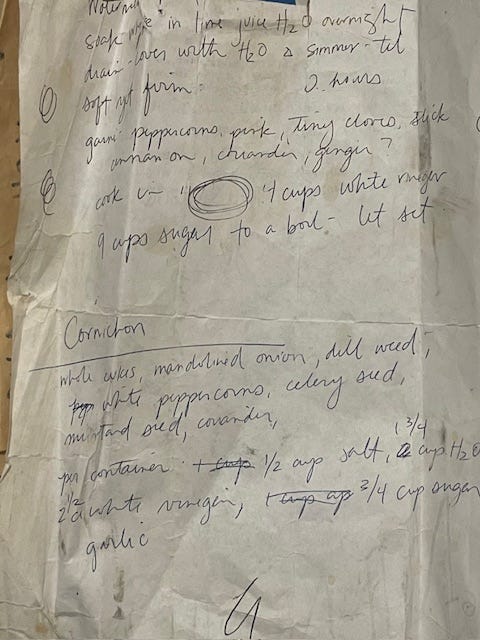 soak in lime juice H2O overnight
drain - cover with H2O simmer - til
soft yet firm. 2 hours
garni peppercorns, pink, Tiny cloves, stick
cinnamon, coriander, ginger?
cook in 4 cups white vinegar
9 cups sugar to a boil - let set
Cornichon
whole cukes, mandolined onion, dill weed,
white peppercorns, celery seed,
mustard seed, coriander,
per container 1 cup 1/2 cup salt, 1 3/4 cup H2O
2 1/2 c white vinegar, 1 cup 3/4 cup sugar
garlic